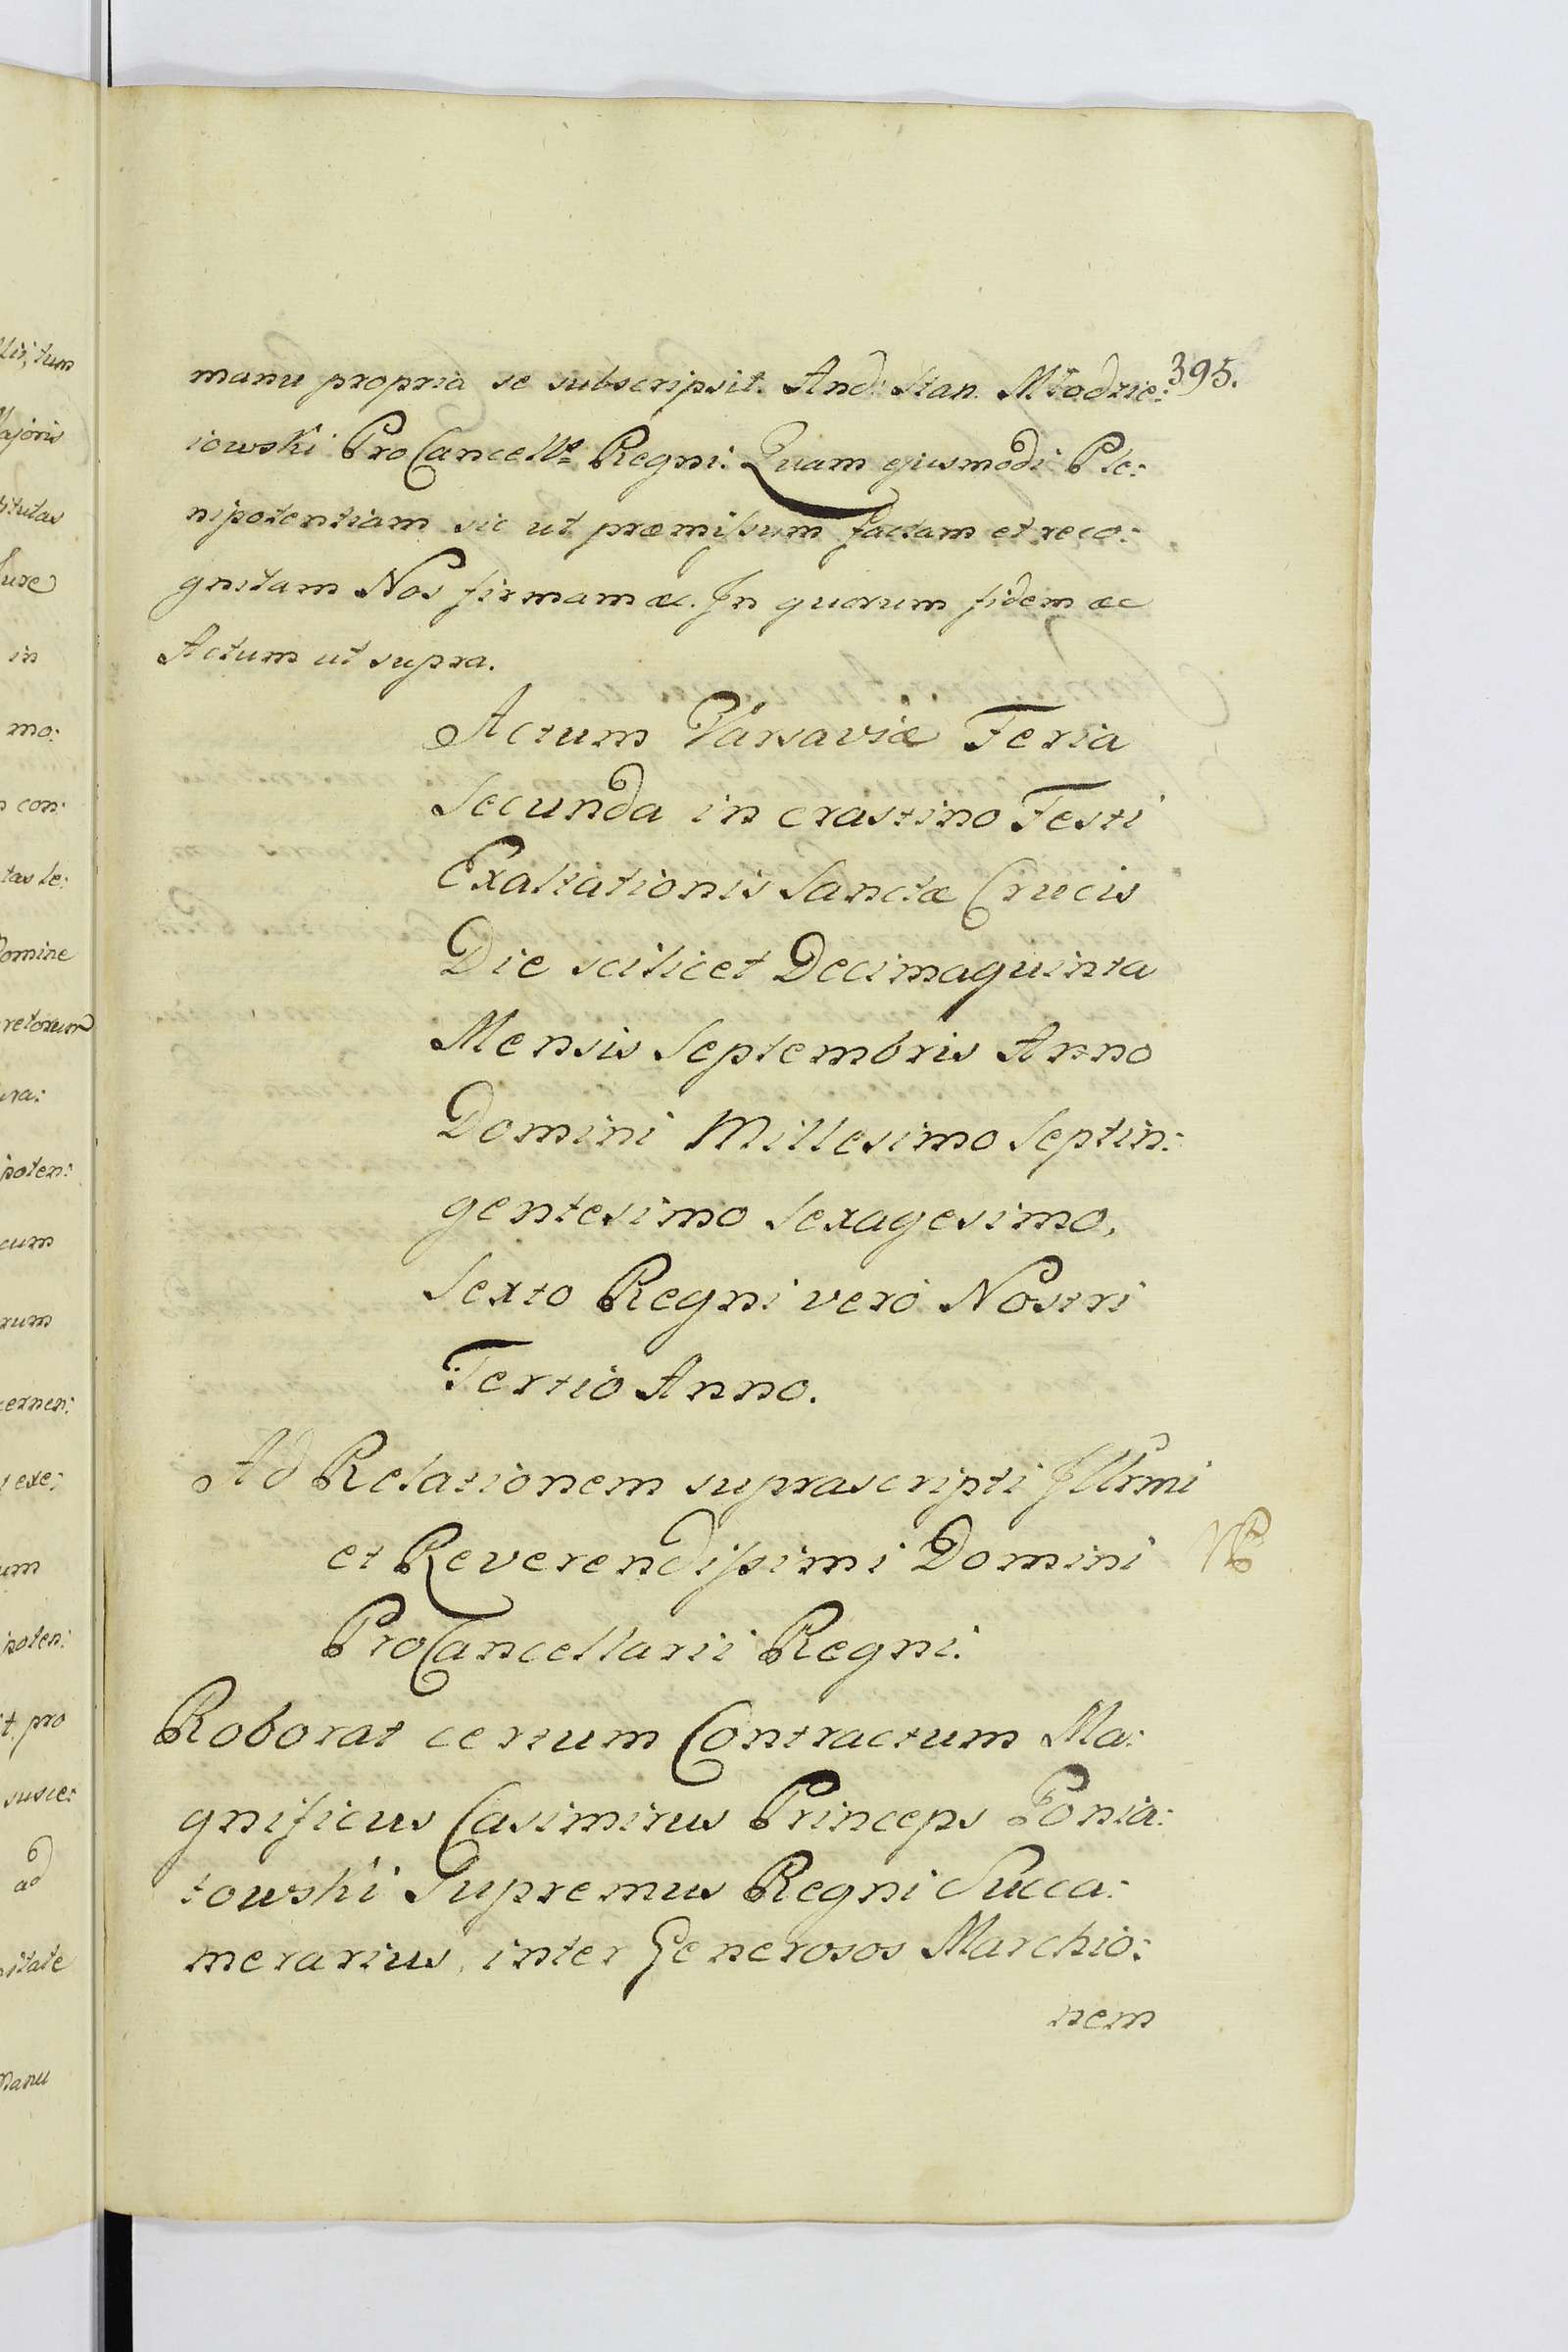 395.
manu propria se subscripsit. And: Stan. Młodzie:
iowski ProCancells Regni. Quam ejusmodi Ple:
nipotentiam sic ut præmissum factam et reco:
gnitam Nos firmam &c. In quorum fidem &c
Actum ut supra.
Actum Varsaviæ Feria
Secunda in crastino Festi
Exaltationis Sanctæ Crucis
Die scilicet Decimaquinta
Mensis Septembris Anno
Domini Millesimo Septin:
gentesimo Sexagesimo,
Sexto Regni verò Nostri
Tertio Anno.
Ad Relationem suprascripti Illrmi
et Reverendissimi Domini
ProCancellarii Regni.
NB
Roborat certum Contractum Ma:
gnificus Casimirus Princeps Ponia:
towski Supremus Regni Succa:
merarius, inter Generosos Marchio:
nem